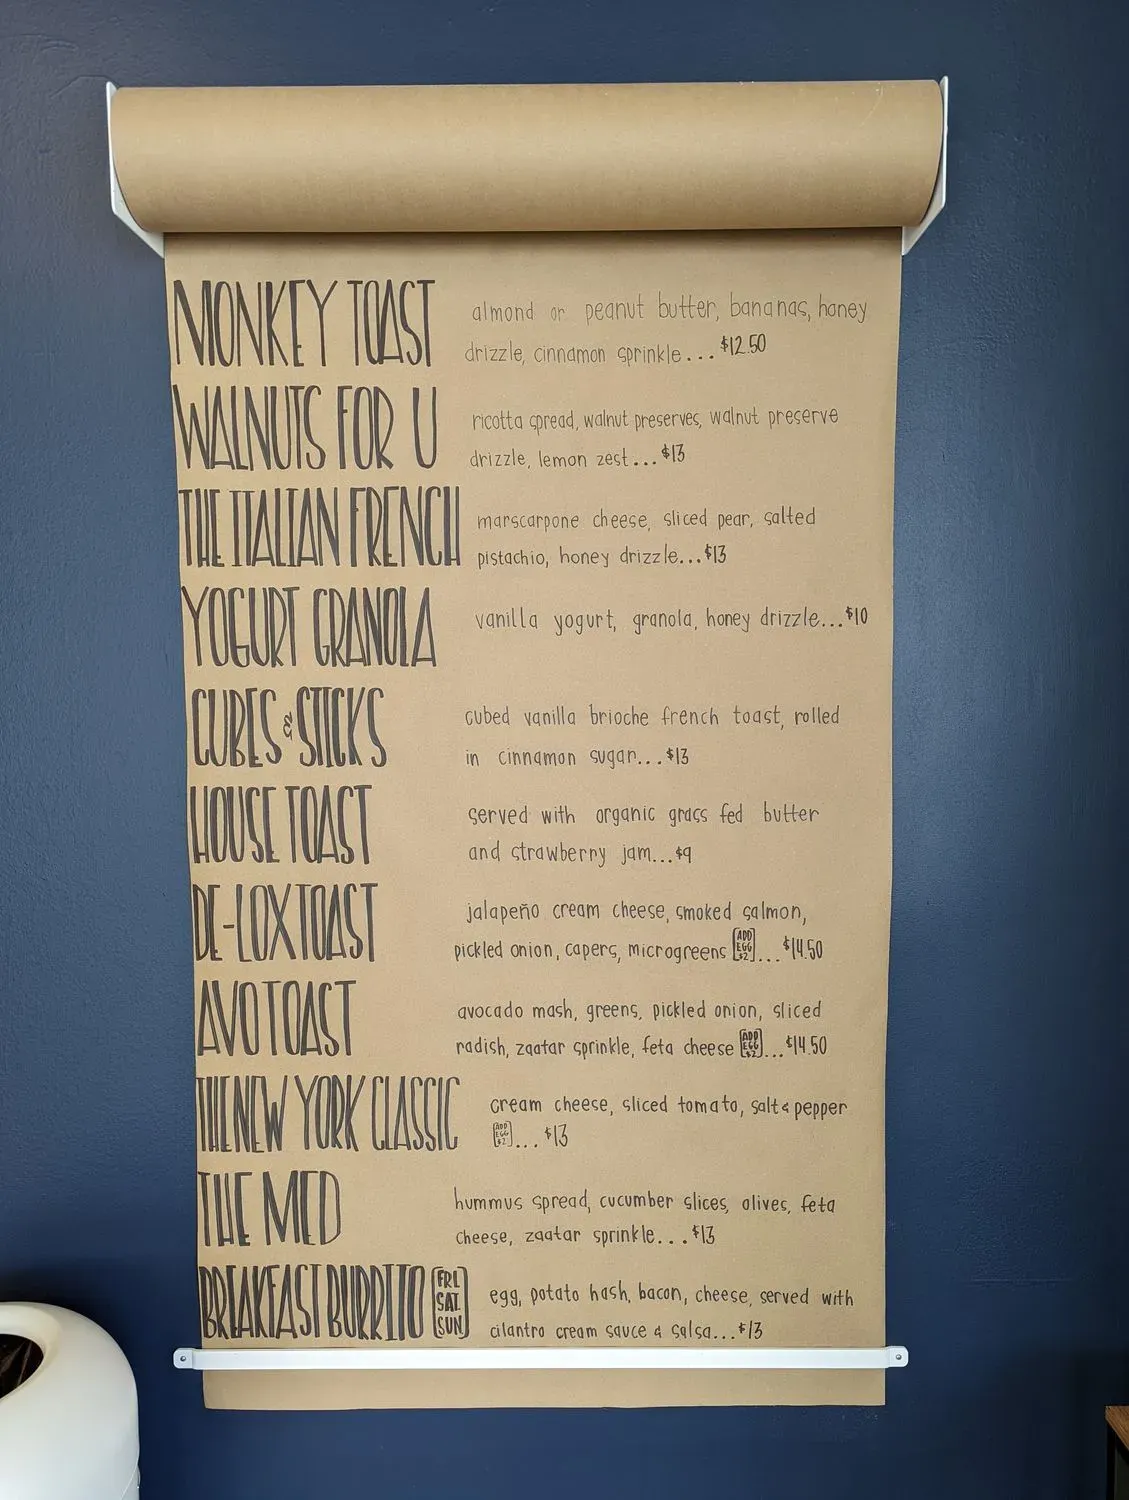 MONKEY TOAST almond or peanut butter, bananas, honey
drizzle, cinnamon sprinkle... $12.50
WALNUTS FOR U ricotta spread, walnut preserves, walnut preserve
drizzle, lemon zest... $13
THE ITALIAN FRENCH marscarpone cheese, sliced pear, salted
pistachio, honey drizzle... $13
YOGURT GRANOLA vanilla yogurt, granola, honey drizzle... $10
CUBES & STICKS cubed vanilla brioche french toast, rolled
in cinnamon sugar... $13
HOUSE TOAST served with organic grass fed butter
and strawberry jam... $9
DE-LOX TOAST jalapeño cream cheese, smoked salmon,
pickled onion, capers, microgreens ADD EGG $2 ... $14.50
AVO TOAST avocado mash, greens, pickled onion, sliced
radish, zaatar sprinkle, feta cheese ADD EGG $2 ... $14.50
THE NEW YORK CLASSIC cream cheese, sliced tomato, salt & pepper
ADD EGG $2 ... $13
THE MED hummus spread, cucumber slices, olives, feta
cheese, zaatar sprinkle... $13
BREAKFAST BURRITO FRI. SAT. SUN egg, potato hash, bacon, cheese, served with
cilantro cream sauce & salsa... $13